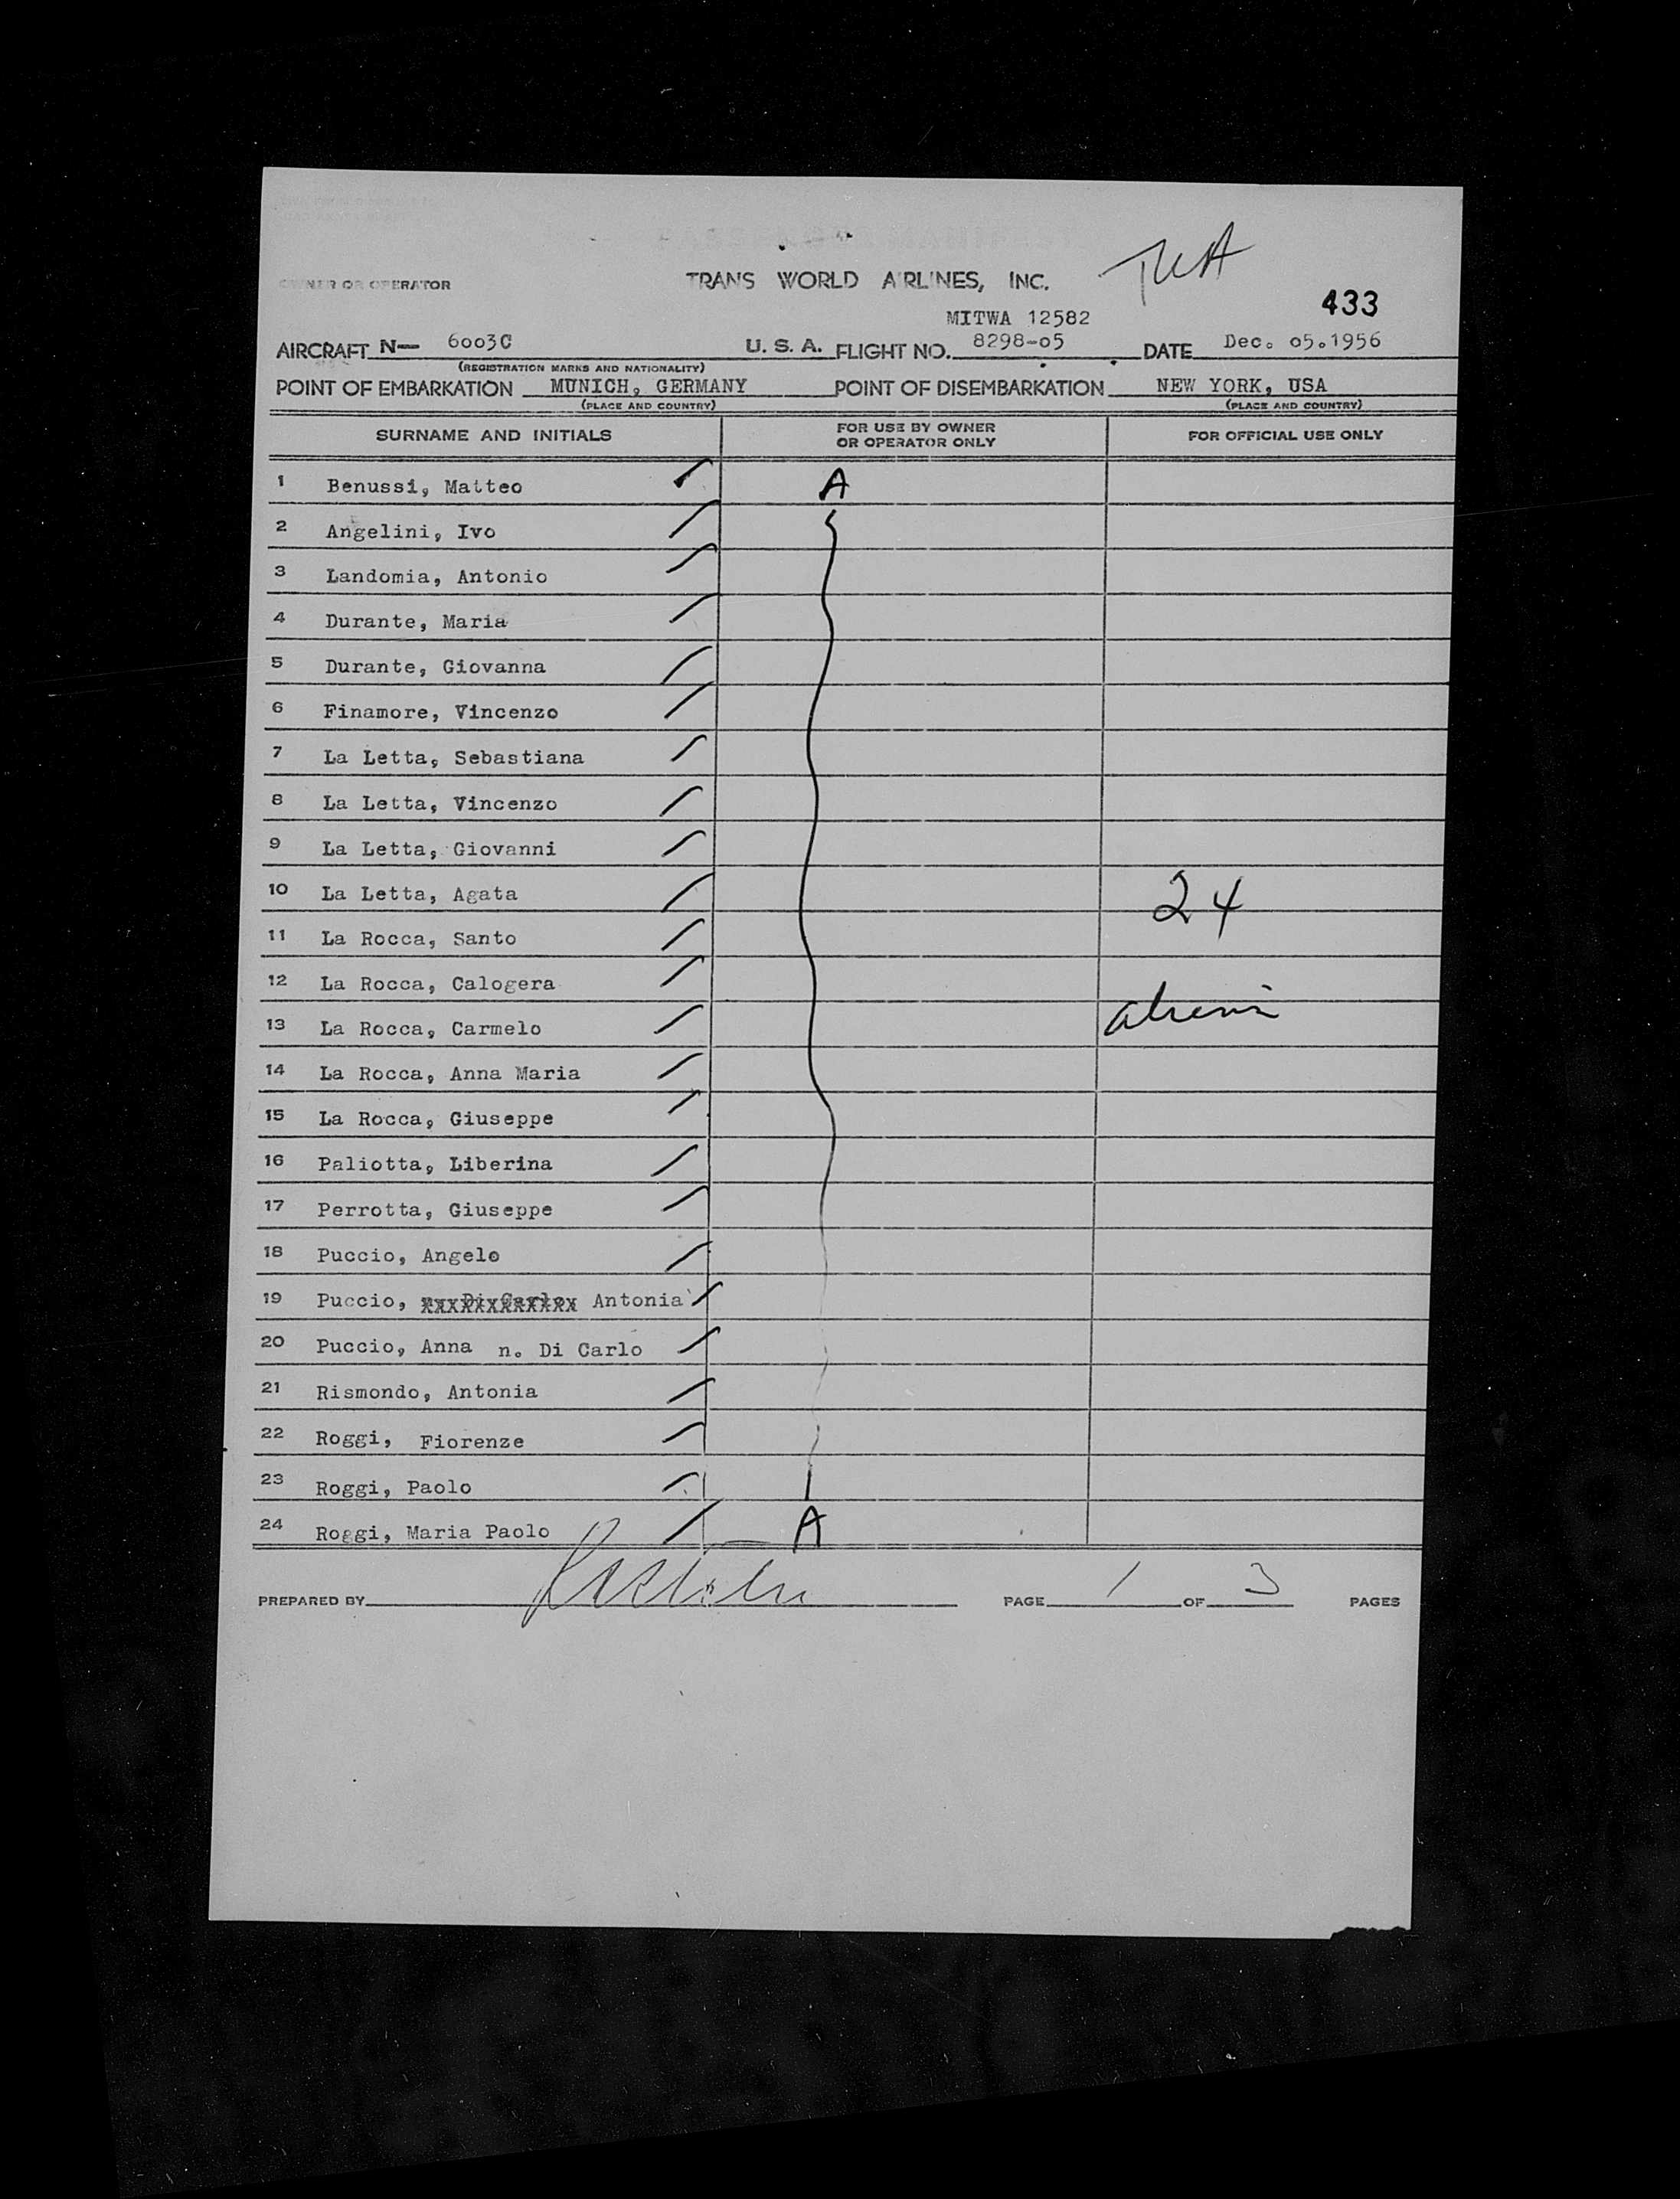 TWA
OWNER OR OPERATOR TRANS WORLD AIRLINES, INC.
433
MITWA 12582
AIRCRAFT N— 6003C U. S. A. FLIGHT NO. 8298-05 DATE Dec. 05.1956
(REGISTRATION MARKS AND NATIONALITY)
POINT OF EMBARKATION MUNICH, GERMANY POINT OF DISEMBARKATION NEW YORK, USA
(PLACE AND COUNTRY) (PLACE AND COUNTRY)
SURNAME AND INITIALS FOR USE BY OWNER OR OPERATOR ONLY FOR OFFICIAL USE ONLY
1 Benussi, Matteo A
2 Angelini, Ivo
3 Landomia, Antonio
4 Durante, Maria
5 Durante, Giovanna
6 Finamore, Vincenzo
7 La Letta, Sebastiana
8 La Letta, Vincenzo
9 La Letta, Giovanni
10 La Letta, Agata 24
11 La Rocca, Santo
12 La Rocca, Calogera
13 La Rocca, Carmelo
14 La Rocca, Anna Maria
15 La Rocca, Giuseppe
16 Paliotta, Liberina
17 Perrotta, Giuseppe
18 Puccio, Angelo
19 Puccio, Antonia
20 Puccio, Anna n. Di Carlo
21 Rismondo, Antonia
22 Roggi, Fiorenze
23 Roggi, Paolo
24 Roggi, Maria Paolo A
PREPARED BY PAGE 1 OF 3 PAGES